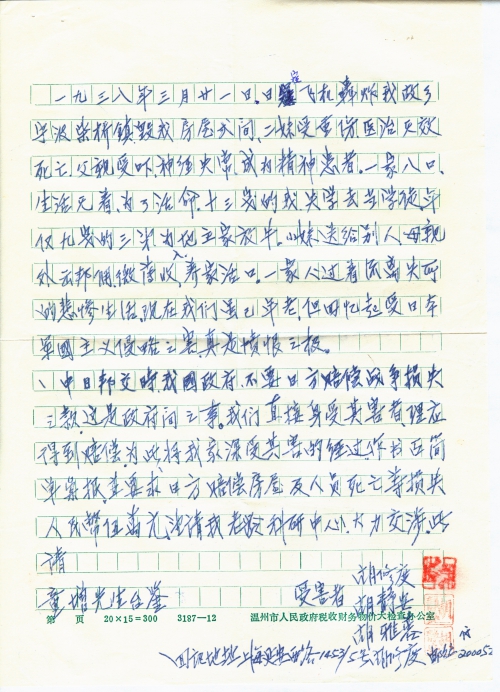 一九三八年三月廿一日。日寇飞机轰炸我故乡
宁波柴桥镇，毁我房屋六间，二妹受重伤医治无效
死亡，父亲受吓，神经失常，成为精神患者。一家八口，
生活无着，为了活命，十三岁的我失学去当学徒，年
仅九岁的三弟为地主家放牛。小妹送给别人，母亲
外出帮佣，微薄收入，养家活口。一家人过着流离失所
的悲惨生活。现在我们虽已年老，但回忆起受日本
军國主义侵略之害，真是愤恨之极。
中日邦交时，我國政府不要日方赔偿战争损失
之款，这是政府间之事。我们直接身受其害者，理应
得到赔偿。为此，将我家深受其害的经过作书面简
单案报，并要求日方赔偿房屋及人员死亡等损失
人民幣伍萬元，法请我老龄科研中心大力交涉。此
请
童增先生台鉴
受害者
胡 度
胡静安
胡雅
第 页 20×15=300 3187—12 温州市人民政府税收财务物价大检查办公室
回讯地址：上海 西路1453/5号 胡 度 邮址 20005